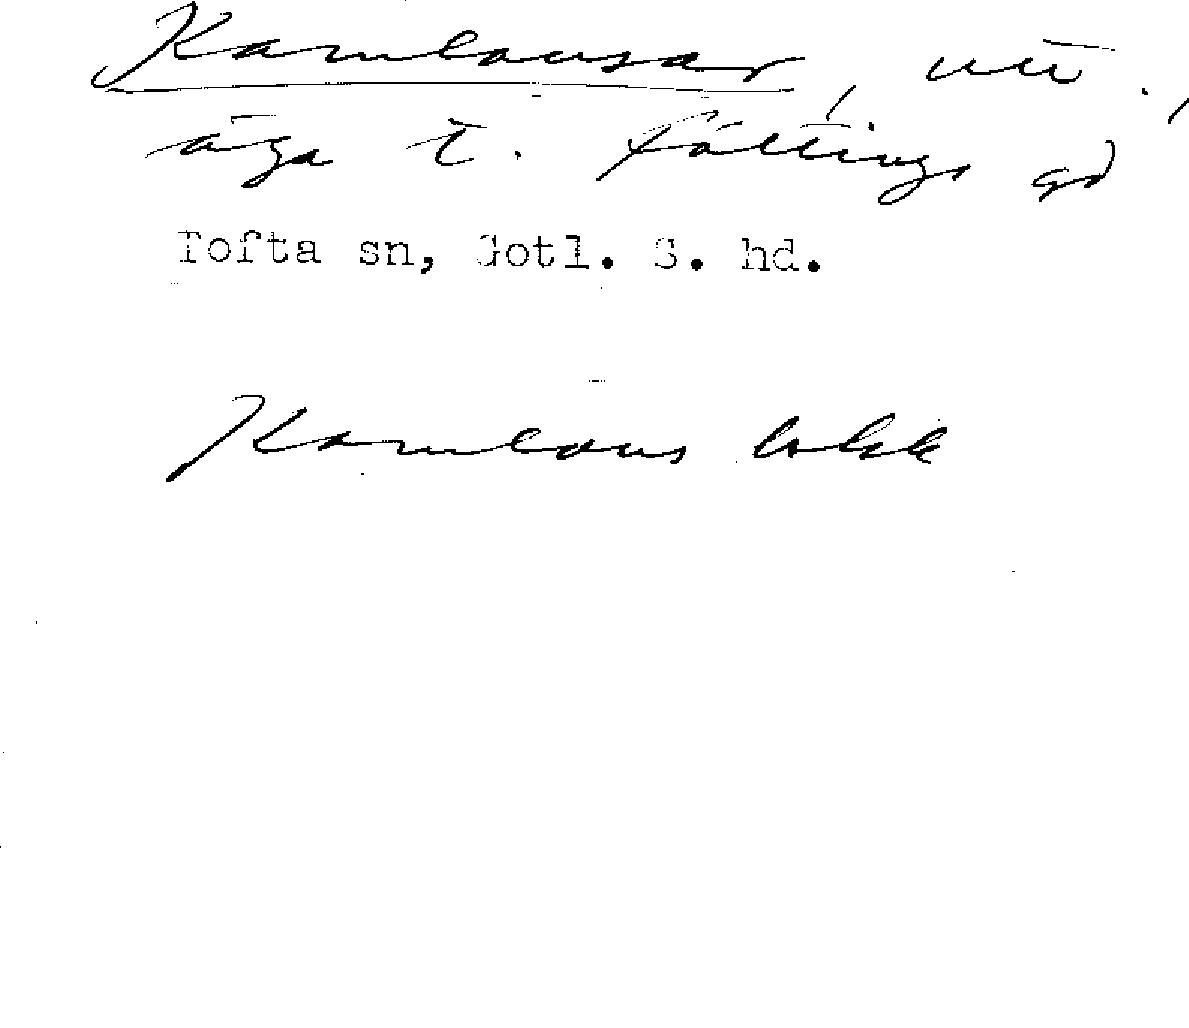 Kamlausar, utt.,
äga t. Fältings gd
Tofta sn, Gotl. S. hd.
Kamlaus